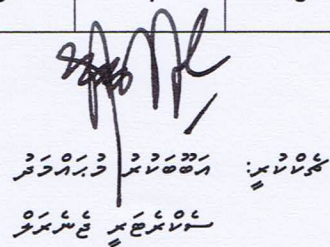 ޗެކްކުރީ: އަބޫބަކުރު މުޙައްމަދު
ސެކްރެޓަރީ ޖެނެރަލް